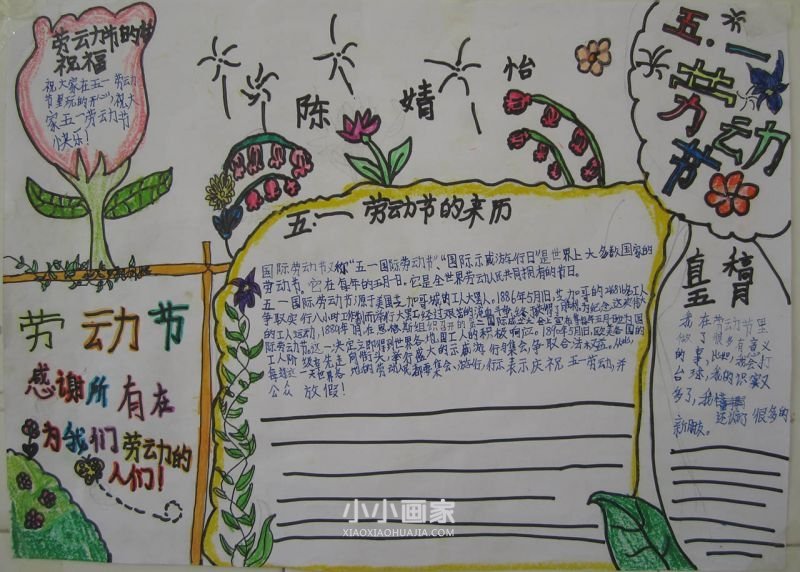 劳动节的
祝福
祝大家在五一劳动
节里玩的开心,祝大
家五一劳动节
快乐!
陈 婧 怡
五.一
劳动
节
五.一 劳动节的来历
国际劳动节又称"五一国际劳动节"、"国际示威游行日"是世界上大多数国家的
劳动节。它在每年的五月一日。它是全世界劳动人民共同拥有的节日。
五一国际劳动节源于美国芝加哥城的工人大罢人,1886年5月1日,芝加哥的
争取实行八小时工制而举行大罢工,经过
的工人运动,1889年
际劳动节。这一决定立即得到世界各地国工人的积极响应。1890年5月1日,欧美各国的
工人阶级率先走向街头,举行盛大的示威游行与集会,争取合法权益。从此,
每逢这一天世界各地的劳动人民都要集会、游行,以示庆祝五一劳动,并
公众放假!
直 稿
五
我在劳动节里
做了很多有意义
的事,比如,我会打
台球,我的识
多了,我
还认了很多的
新朋友。
劳动节
感谢所有在
为我们劳动的
人们!
小小画家
XIAOXIAOHUAJIA.COM